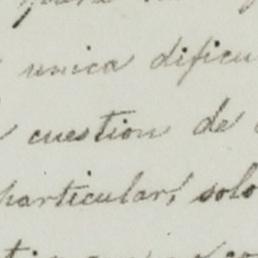 unica dificu
cuestion de
particular, solo